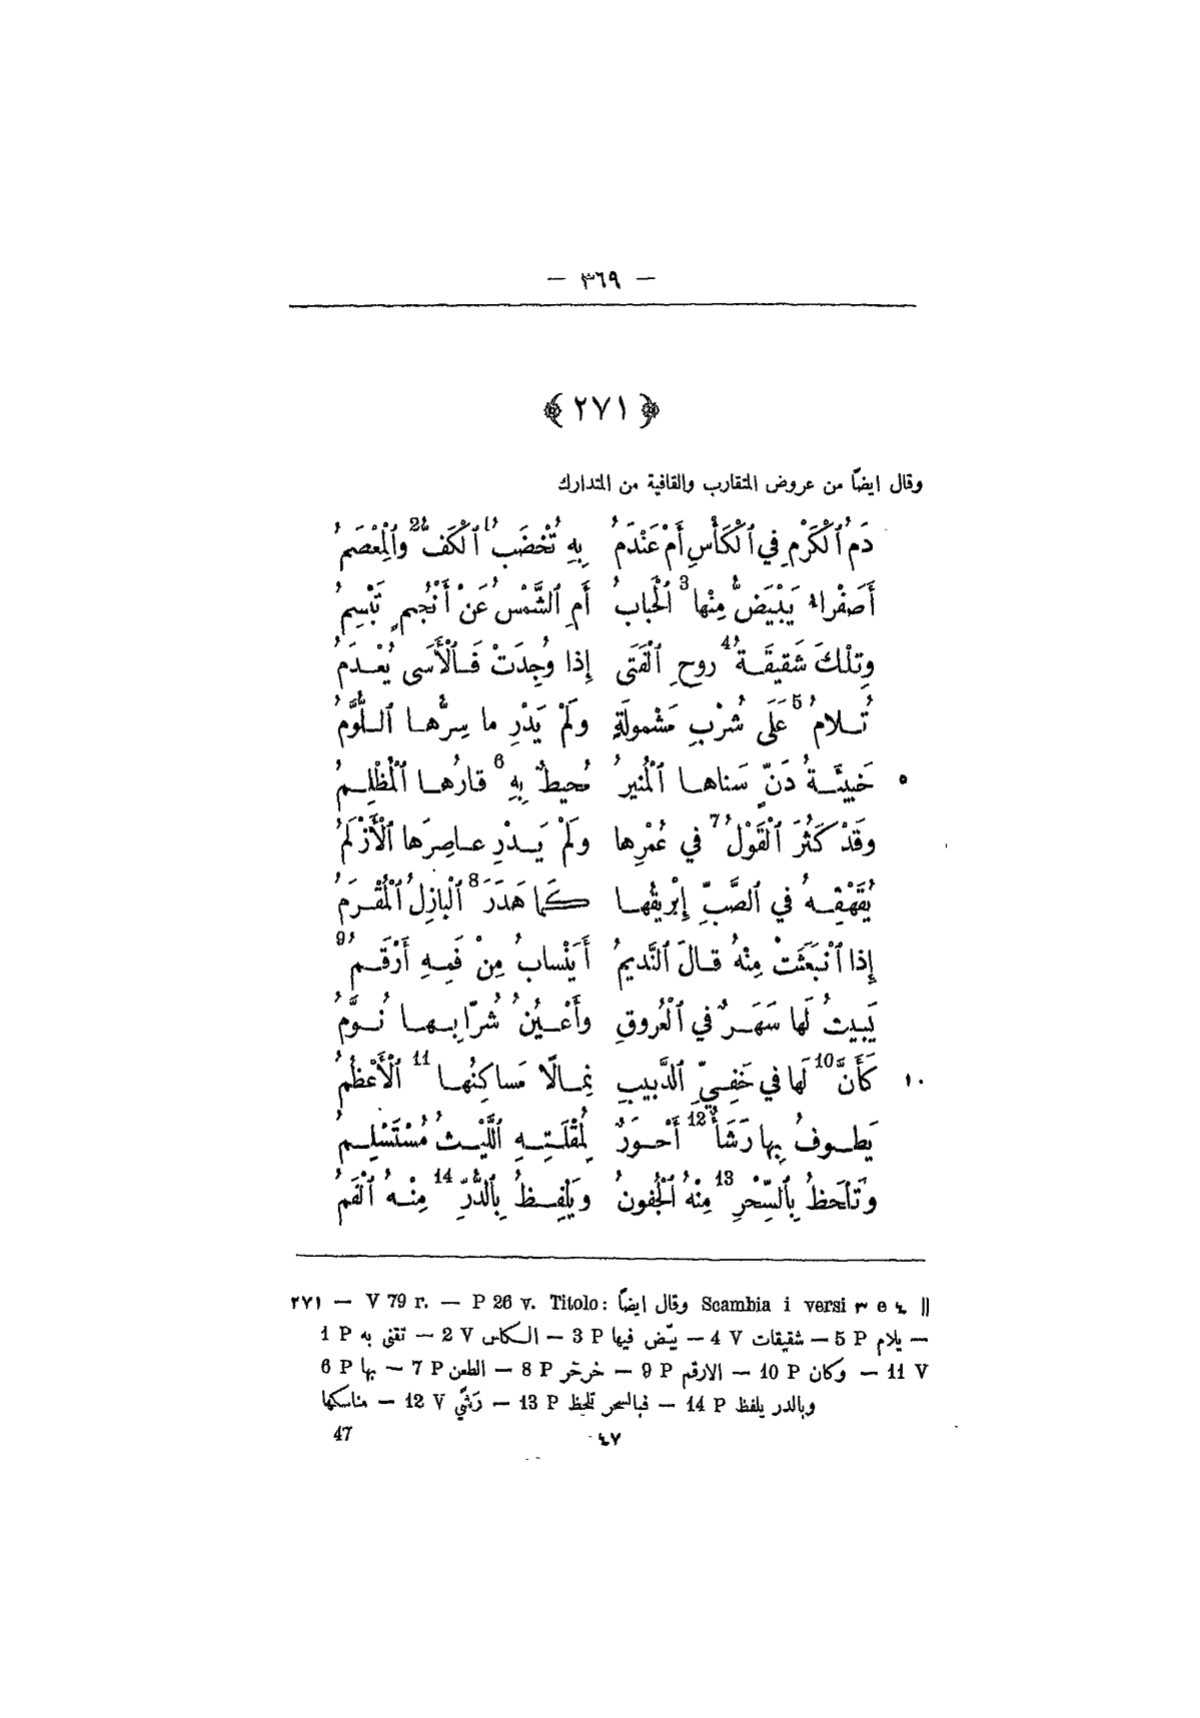 — ٣٦٩ —
﴿ ٢٧١ ﴾
وقال ايضًا من عروض المتقارب والقافية من المتدارك
دَمُ ٱلْكَرْمِ فِي ٱلْكَأْسِ أَمْ عَنْدَمُ بِهِ تُخْضَبُ1 ٱلْكَفُّ2 وٱلْمِعْصَمُ
أَصَفْراءُ يَبْيَضُّ مِنْها3 ٱلْحَبابُ أَمِ ٱلشَّمْسُ عَنْ أَنْجُمٍ تَبْسِمُ
وتِلْكَ شَقيقَةُ4 روحِ ٱلْفَتَى إِذا وُجِدَتْ فَٱلْأَسَى يُعْدَمُ
تُلامُ5 عَلَى شُرْبِ مَشْمولَةٍ ولَمْ يَدْرِ ما سِرُّها ٱللُّوَّمُ
٥ خَبيئَةُ دَنٍّ سَناها ٱلْمُنيرُ مُحيطٌ بِهِ6 قارُها ٱلْمُظْلِمُ
وقَدْ كَثُرَ ٱلْقَوْلُ7 في عُمْرِها ولَمْ يَدْرِ عاصِرَها ٱلْأَزْلَمُ
يُقَهْقِهُ في ٱلصَّبِّ إِبْريقُها كَما هَدَرَ8 ٱلْبازِلُ ٱلْمُقْرَمُ
إِذا ٱنْبَعَثَتْ مِنْهُ قالَ ٱلنَّديمُ أَيَنْسابُ مِنْ فَمِهِ أَرْقَمُ9
يَبيتُ لَها سَهَرٌ في ٱلْعُروقِ وأَعْيُنُ شُرّابِها نُوَّمُ
١٠ كَأَنَّ10 لَها في خَفِيِّ ٱلدَّبيبِ نِمالًا مَساكِنُها11 ٱلْأَعْظُمُ
يَطوفُ بِها رَشَأٌ12 أَحْوَرٌ لِمُقْلَتِهِ ٱللَّيْثُ مُسْتَسْلِمُ
وتَلْحَظُ بِٱلسِّحْرِ13 مِنْهُ ٱلْجُفونُ ويَلْفِظُ بِٱلدُّرِّ14 مِنْهُ ٱلْفَمُ
٢٧١ — V 79 r. — P 26 v. Titolo: وقال ايضًا Scambia i versi ٣ e ٤ ||
1 P تقنى به — 2 V الكاس — 3 P بيّض فيها — 4 V شقيقات — 5 P يلام —
6 P بها — 7 P الطعن — 8 P خرخر — 9 P الارقم — 10 P وكان — 11 V
مناسكها — 12 V رَشَيٌّ — 13 P فبالسحر تلحظ — 14 P وبالدر يلفظ
47 ٤٧